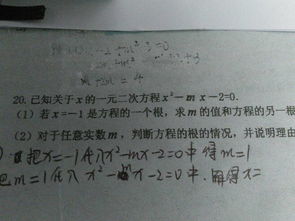 m + 2m = 4
20. 已知关于 x 的一元二次方程 x²-m x-2=0.
(1) 若 x=-1 是方程的一个根，求 m 的值和方程的另一根
(2) 对于任意实数 m，判断方程的根的情况，并说明理由
把 x=-1代入 x²-mx-2=0中 得 m=1
把 m=1代入 x²- x-2=0中. 解得 x=